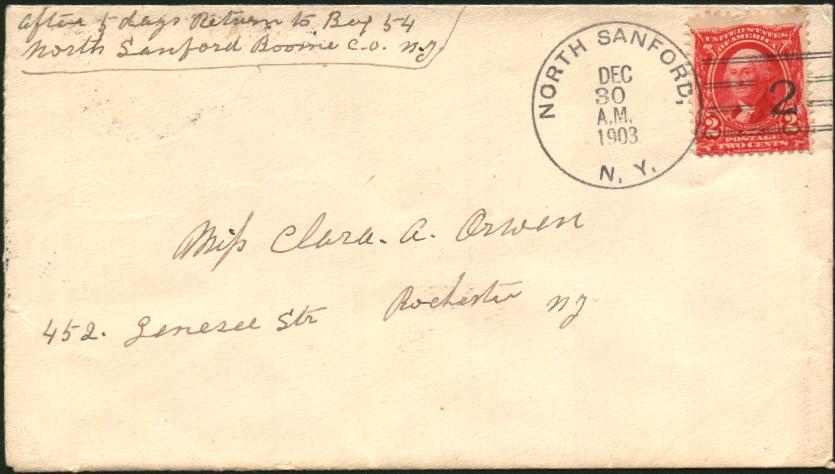 After 5 days Return to Box 54
North Sanford Boome C.O. N.Y.
NORTH SANFORD,
DEC
30
A.M.
1903
N. Y.
UNITED STATES
OF AMERICA
2
2 2
POSTAGE
TWO CENTS
Miss Clara. A. Orwen
452. Genesee Str Rochester NY